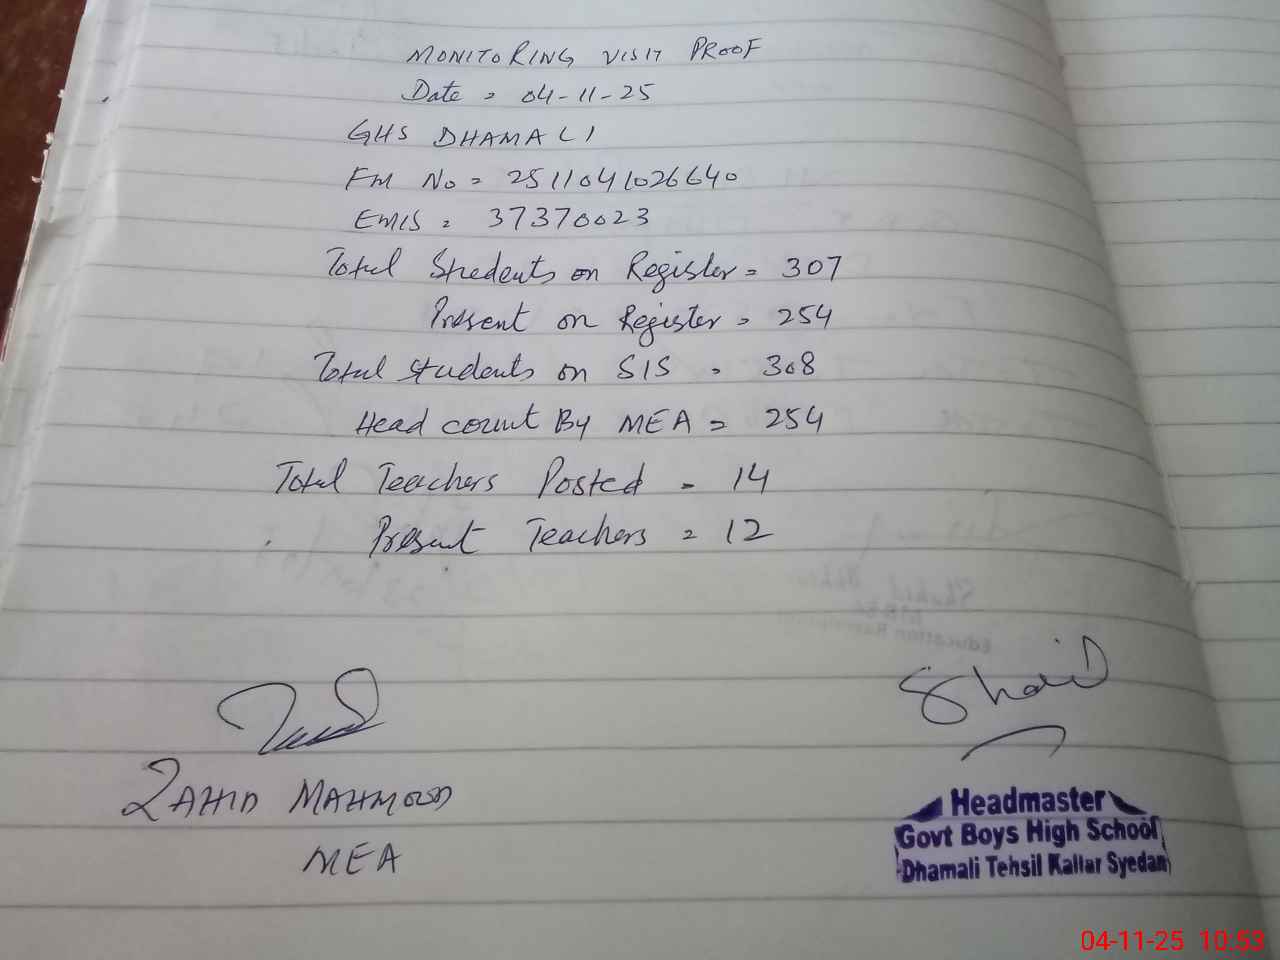 MONITORING VISIT PROOF
Date = 04-11-25
GHS DHAMALI
FM No = 2511041026640
EMIS = 37370023
Total Students on Register = 307
Present on Register = 254
Total Students on SIS = 308
Head count By MEA = 254
Total Teachers Posted = 14
Present Teachers = 12
Shaid
ZAHID MAHMOOD
MEA
Headmaster
Govt Boys High School
Dhamali Tehsil Kallar Syedan
04-11-25 10:53